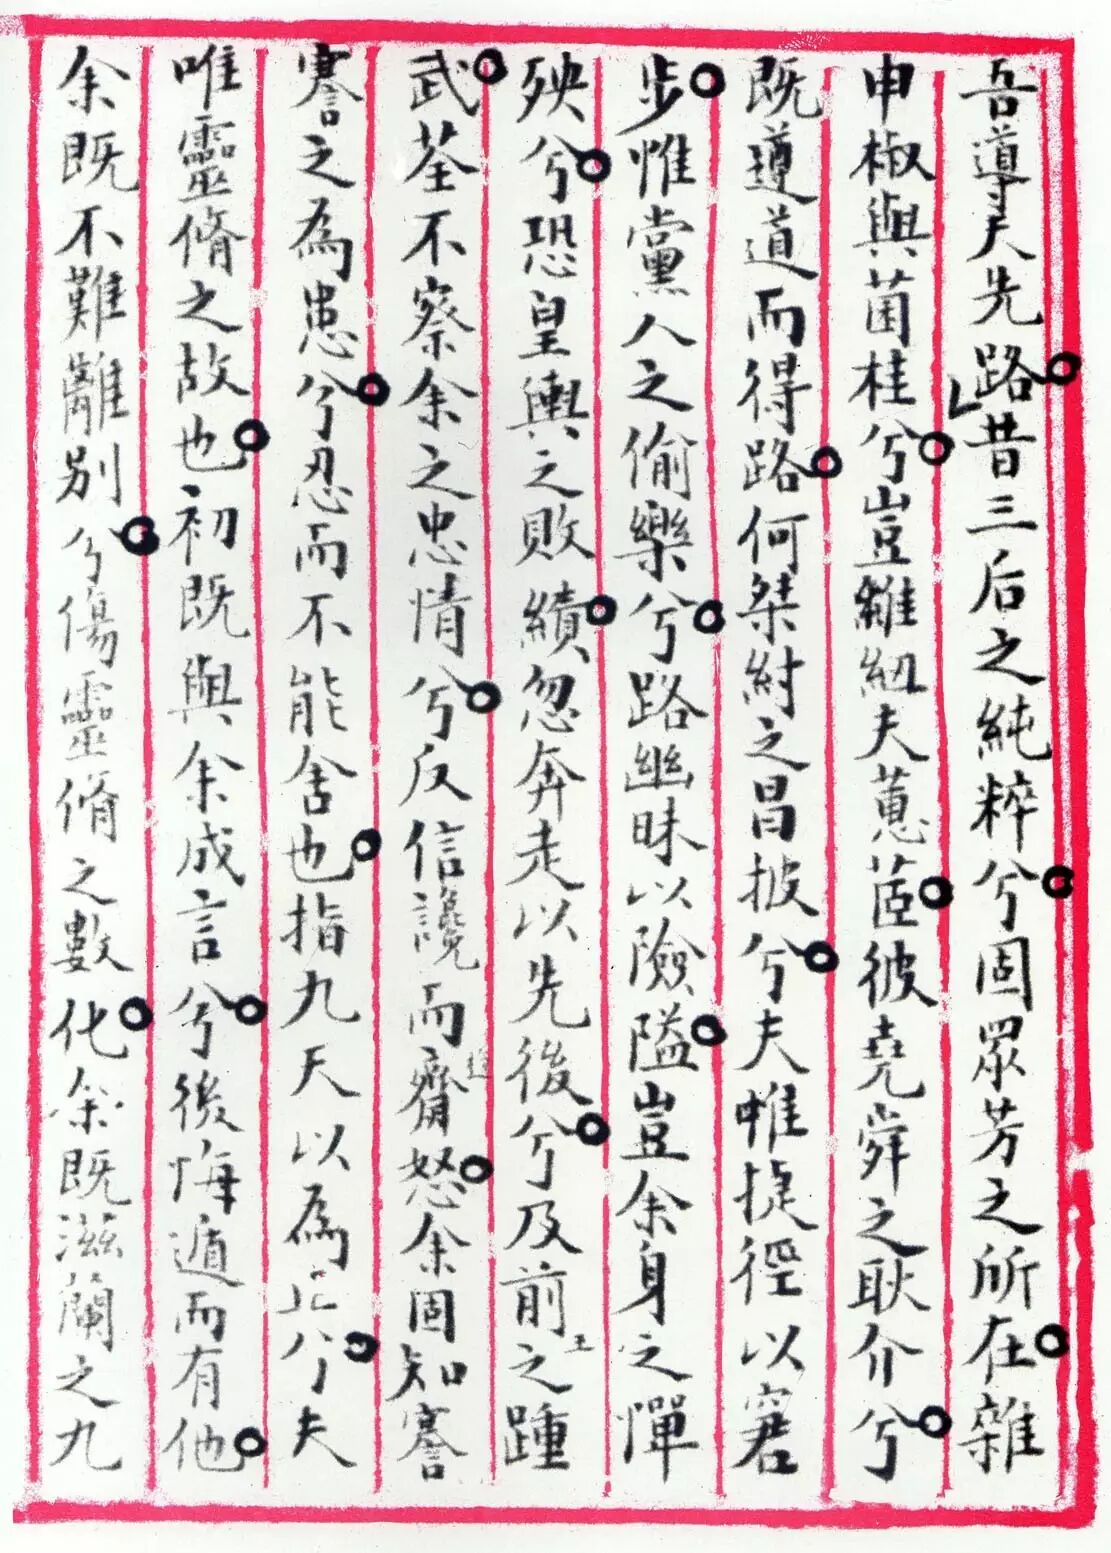 吾導夫先路。昔三后之純粹兮。固眾芳之所在。雜
申椒與菌桂兮。豈維紉夫蕙茝。彼堯舜之耿介兮。
既遵道而得路。何桀紂之昌披兮。夫惟捷徑以窘
步。惟黨人之偷樂兮。路幽昧以險隘。豈余身之憚
殃兮。恐皇輿之敗績。忽奔走以先後兮。及前王之踵
武。荃不察余之忠情兮。反信讒而齌怒。余固知謇
謇之為患兮。忍而不能舍也。指九天以為正兮。夫
唯靈脩之故也。初既與余成言兮。後悔遁而有他。
余既不難離別兮。傷靈脩之數化。余既滋蘭之九